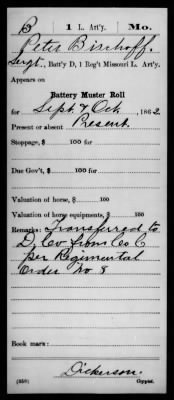 B | 1 L. Art'y. | Mo.
Peter Bischoff
Sergt., Batt'y D, 1 Reg't Missouri L. Art'y.
Appears on
Battery Muster Roll
for Sept & Oct, 1862.
Present or absent Present
Stoppage, $ 100 for
Due Gov't, $ 100 for
Valuation of horse, $ 100
Valuation of horse equipments, $ 100
Remarks: Transferred to
D, Co from Co C
per Regimental
Order No 8
Book mark:
Dickerson.
(359) Copyist.